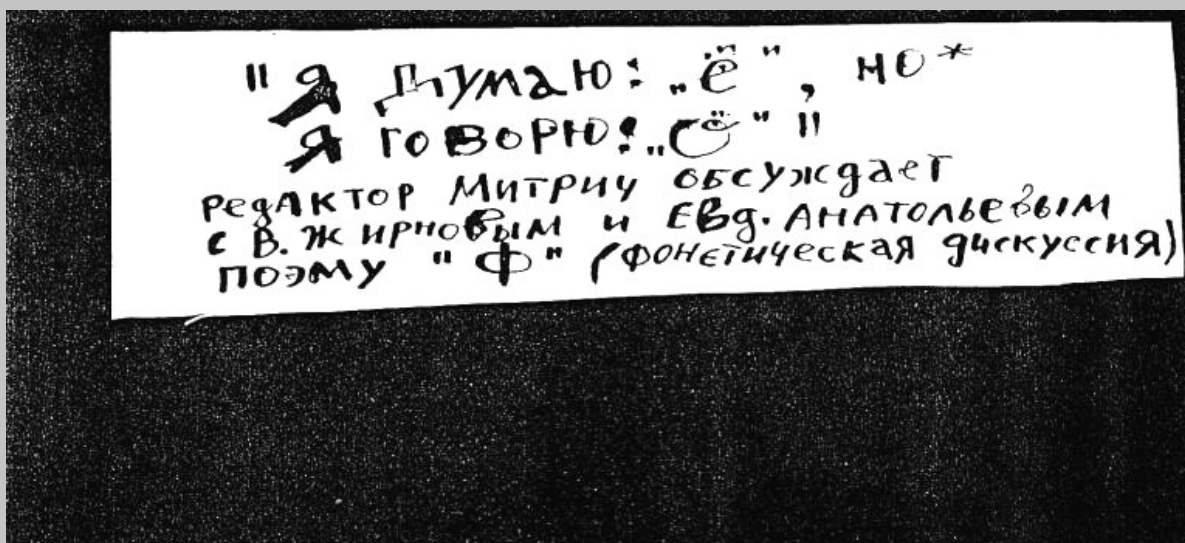 "Я думаю: „ё", но*
я говорю: „ё" "
редактор Митрич обсуждает
с В. Жирновым и Евд. Анатольевым
поэму "Ф" (фонетическая дискуссия)